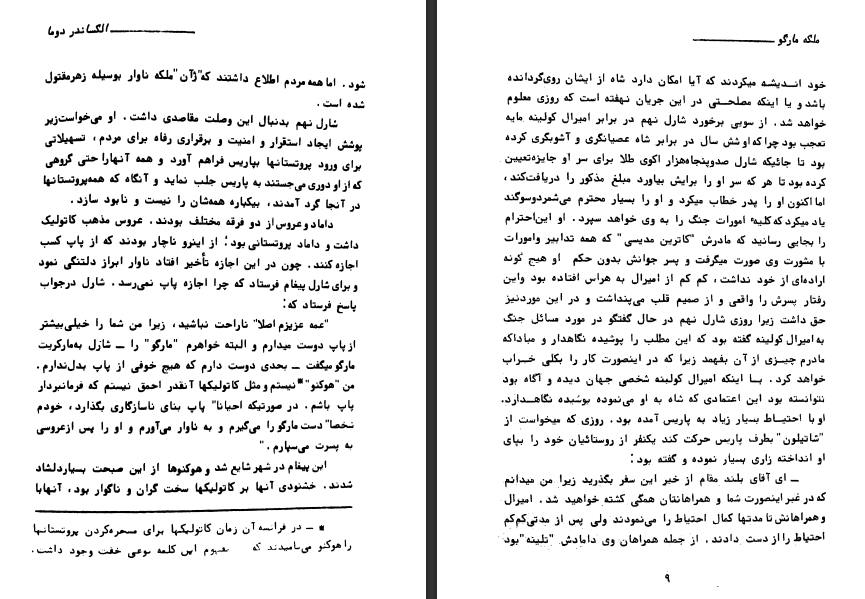 الکساندر دوما
شود . اما همه مردم اطلاع داشتند که "ژآن" ملکه ناوار بوسیله زهر مقتول
شده است .
شارل نهم بدنبال این وصلت مقاصدی داشت . او می‌خواست زیر
پوشش ایجاد استقرار و امنیت و برقراری رفاه برای مردم ، تسهیلاتی
برای ورود پروتستانها بپاریس فراهم آورد و همه آنها را حتی گروهی
که از او دوری می‌جستند به پاریس جلب نماید و آنگاه که همه پروتستانها
در آنجا گرد آمدند ، بیکباره همه‌شان را نیست و نابود سازد .
داماد و عروس از دو فرقه مختلف بودند . عروس مذهب کاتولیک
داشت و داماد پروتستانی بود ؛ از اینرو ناچار بودند که از پاپ کسب
اجازه کنند . چون در این اجازه تأخیر افتاد ناوار ابراز دلتنگی نمود
و برای شارل پیغام فرستاد که چرا اجازه پاپ نمی‌رسد . شارل در جواب
پاسخ فرستاد که :
"عمه عزیزم اصلا" ناراحت نباشید ، زیرا من شما را خیلی بیشتر
از پاپ دوست میدارم و البته خواهرم "مارگو" را ــ شارل به مارکریت
مارگو میگفت ــ بحدی دوست دارم که هیچ خوفی از پاپ بدل ندارم .
من "هوکنو"* نیستم و مثل کاتولیکها آنقدر احمق نیستم که فرمانبردار
پاپ باشم . در صورتیکه احیانا" پاپ بنای ناسازگاری بگذارد ، خودم
شخصا" دست مارگو را می‌گیرم و به ناوار می‌آورم و او را پس از عروسی
به پسرت می‌سپارم . "
این پیغام در شهر شایع شد و هوکنوها از این صحبت بسیار دلشاد
شدند . خشنودی آنها بر کاتولیکها سخت گران و ناگوار بود ، آنها با
* ــ در فرانسه آن زمان کاتولیکها برای مسخره کردن پروتستانها
را هوکنو می‌نامیدند که مفهوم این کلمه نوعی خفت وجود داشت .
ملکه مارگو
خود اندیشه میکردند که آیا امکان دارد شاه از ایشان روی گردانده
باشد و یا اینکه مصلحتی در این جریان نهفته است که روزی معلوم
خواهد شد . از سویی برخورد شارل نهم در برابر امیرال کولینه مایه
تعجب بود چرا که او شش سال در برابر شاه عصیانگری و آشوبگری کرده
بود تا جائیکه شارل صدو پنجاه‌هزار اکوی طلا برای سر او جایزه تعیین
کرده بود تا هر که سر او را برایش بیاورد مبلغ مذکور را دریافت کند ،
اما اکنون او را پدر خطاب میکرد و او را بسیار محترم می‌شمرد و سوگند
یاد میکرد که کلیه امورات جنگ را به وی خواهد سپرد . او این احترام
را بجایی رسانید که مادرش "کاترین مدیسی" که همه تدابیر و امورات
با مشورت وی صورت میگرفت و پسر جوانش بدون حکم او هیچ گونه
اراده‌ای از خود نداشت ، کم کم از امیرال به هراس افتاده بود و این
رفتار پسرش را واقعی و از صمیم قلب می‌پنداشت و در این مورد نیز
حق داشت زیرا روزی شارل نهم در حال گفتگو در مورد مسائل جنگ
به امیرال کولینه گفته بود که این مطلب را پوشیده نگاهدار و مبادا که
مادرم چیزی از آن بفهمد زیرا که در اینصورت کار را بکلی خراب
خواهد کرد . با اینکه امیرال کولینه شخصی جهان دیده و آگاه بود
نتوانسته بود این اعتمادی که شاه به او می‌نموده پوشیده نگاهدارد .
او با احتیاط بسیار زیاد به پاریس آمده بود . روزی که میخواست از
"شاتیلون" بطرف پاریس حرکت کند یکنفر از روستائیان خود را بپای
او انداخته زاری بسیار نموده و گفته بود :
ــ ای آقای بلند مقام از خیر این سفر بگذرید زیرا من میدانم
که در غیر اینصورت شما و همراهانتان همگی کشته خواهید شد . امیرال
و همراهانش تا مدتها کمال احتیاط را می‌نمودند ولی پس از مدتی کم‌کم
احتیاط را از دست دادند . از جمله همراهان وی دامادش "تلینه" بود
۹